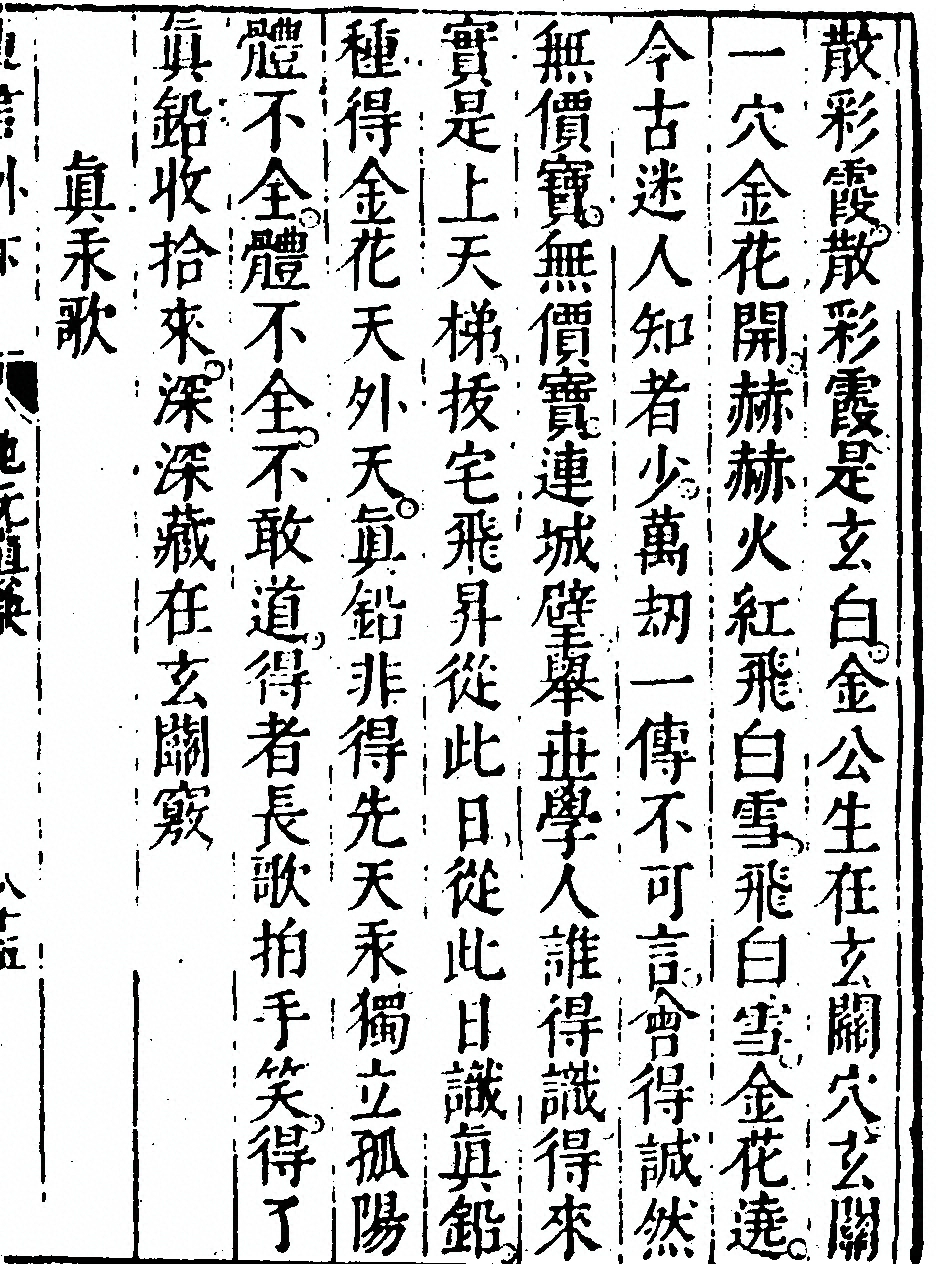 散彩霞散彩霞是玄白金公生在玄關穴玄關
一穴金花開赫赫火紅飛白雪飛白雪金花遶
今古迷人知者少萬劫一傳不可言會得誠然
無價寶無價寶連城壁舉世學人誰得識得來
實是上天梯拔宅飛昇從此日從此日識眞鉛
種得金花天外天眞鉛非得先天汞獨立孤陽
體不全體不全不敢道得者長歌拍手笑得了
眞鉛收拾來深深藏在玄關竅
眞汞歌
八十五